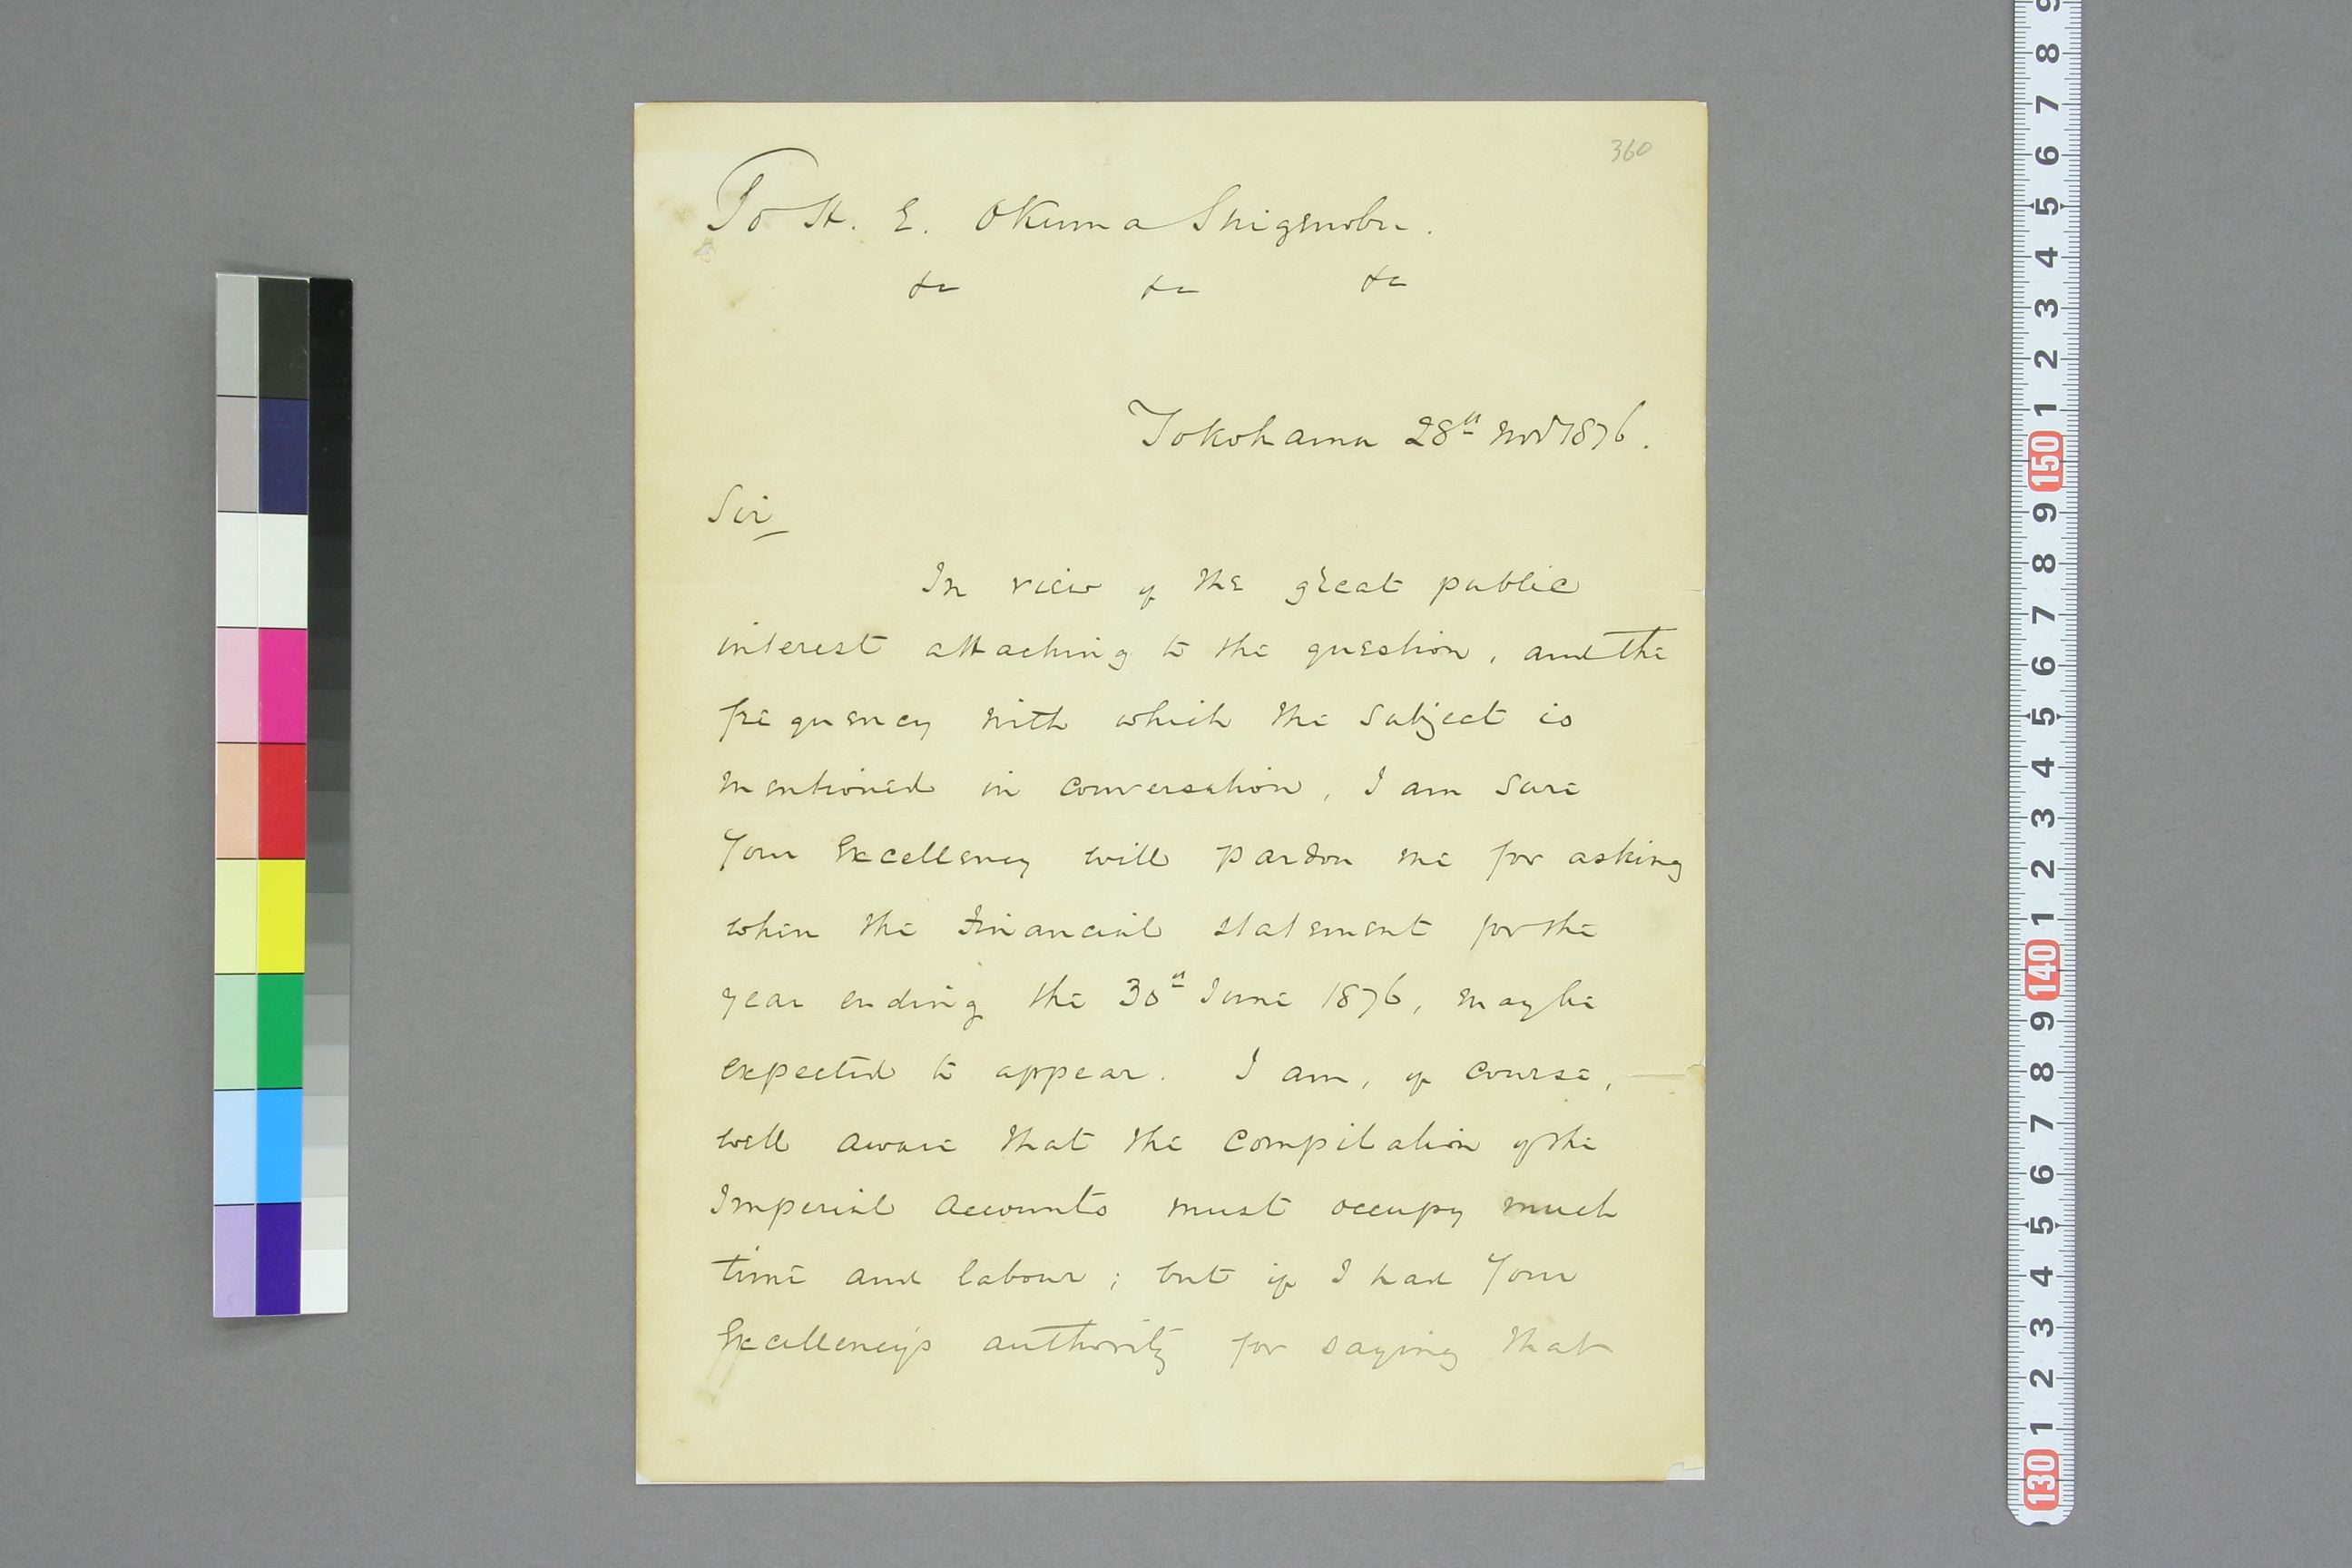 360
To H. E. Okuma Shigenobu.
&c &c &c
Yokohama 28th Nov 1876.
Sir
In view of the great public
interest attaching to the question, and the
frequency with which the subject is
mentioned in conversation, I am sure
Your Excellency will pardon me for asking
when the Financial statement for the
year ending the 30th June 1876, may be
expected to appear. I am, of course,
well aware that the compilation of the
Imperial accounts must occupy much
time and labour; but if I had Your
Excellency's authority for saying that
9
8
7
6
5
4
3
2
1
150
9
8
7
6
5
4
3
2
1
140
9
8
7
6
5
4
3
2
1
130